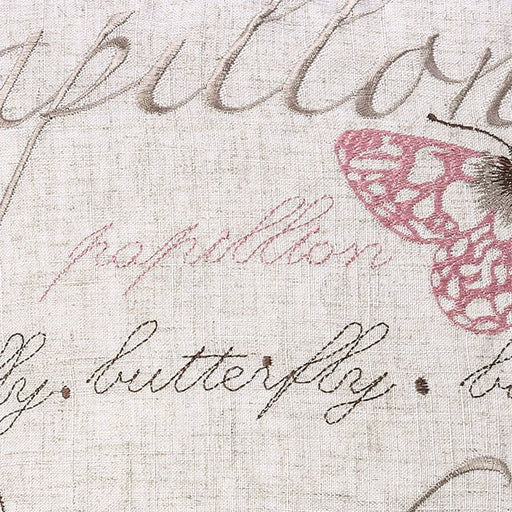 apillon
papillon
fly. butterfly. bu